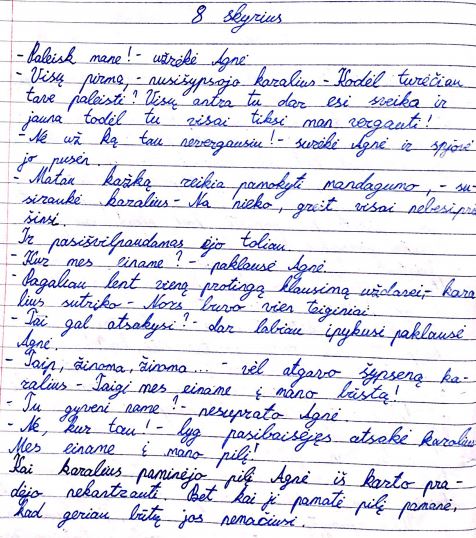 8 skyrius
- Paleisk mane! - užrėkė Agnė
- Visų pirmą - nusišypsojo karalius - Kodėl turėčiau
tave paleisti? Visų antra tu dar esi sveika ir
jauna todėl tu visai tiksi man vergauti!
- Nė už ką tau nevergausiu! - surėkė Agnė ir spjovė
jo pusėn.
- Matau kažką reikia pamokyti mandagumo, - su-
siraukė karalius - Na nieko, greit visai nebesipra
šinsi.
Ir pasišvilpaudamas ėjo toliau.
- Kur mes einame? - paklausė Agnė.
- Pagaliau bent vieną protingą klausimą uždavei, - kara
lius sutriko - Nors buvo vien teiginiai.
- Tai gal atsakysi? - dar labiau įpykusi paklausė
Agnė.
- Taip, žinoma, žinoma... - vėl atgavo šypseną ka-
ralius - Taigi mes einame į mano būstą!
- Tu gyveni name? - nesuprato Agnė.
- Nė, kur tau! - lyg pasibaisėjęs atsakė karalius
Mes einame į mano pilį!
Kai karalius paminėjo pilį Agnė iš karto pra-
dėjo nekantrauti. Bet kai ji pamatė pilį pamanė,
kad geriau būtų jos nemačiusi.